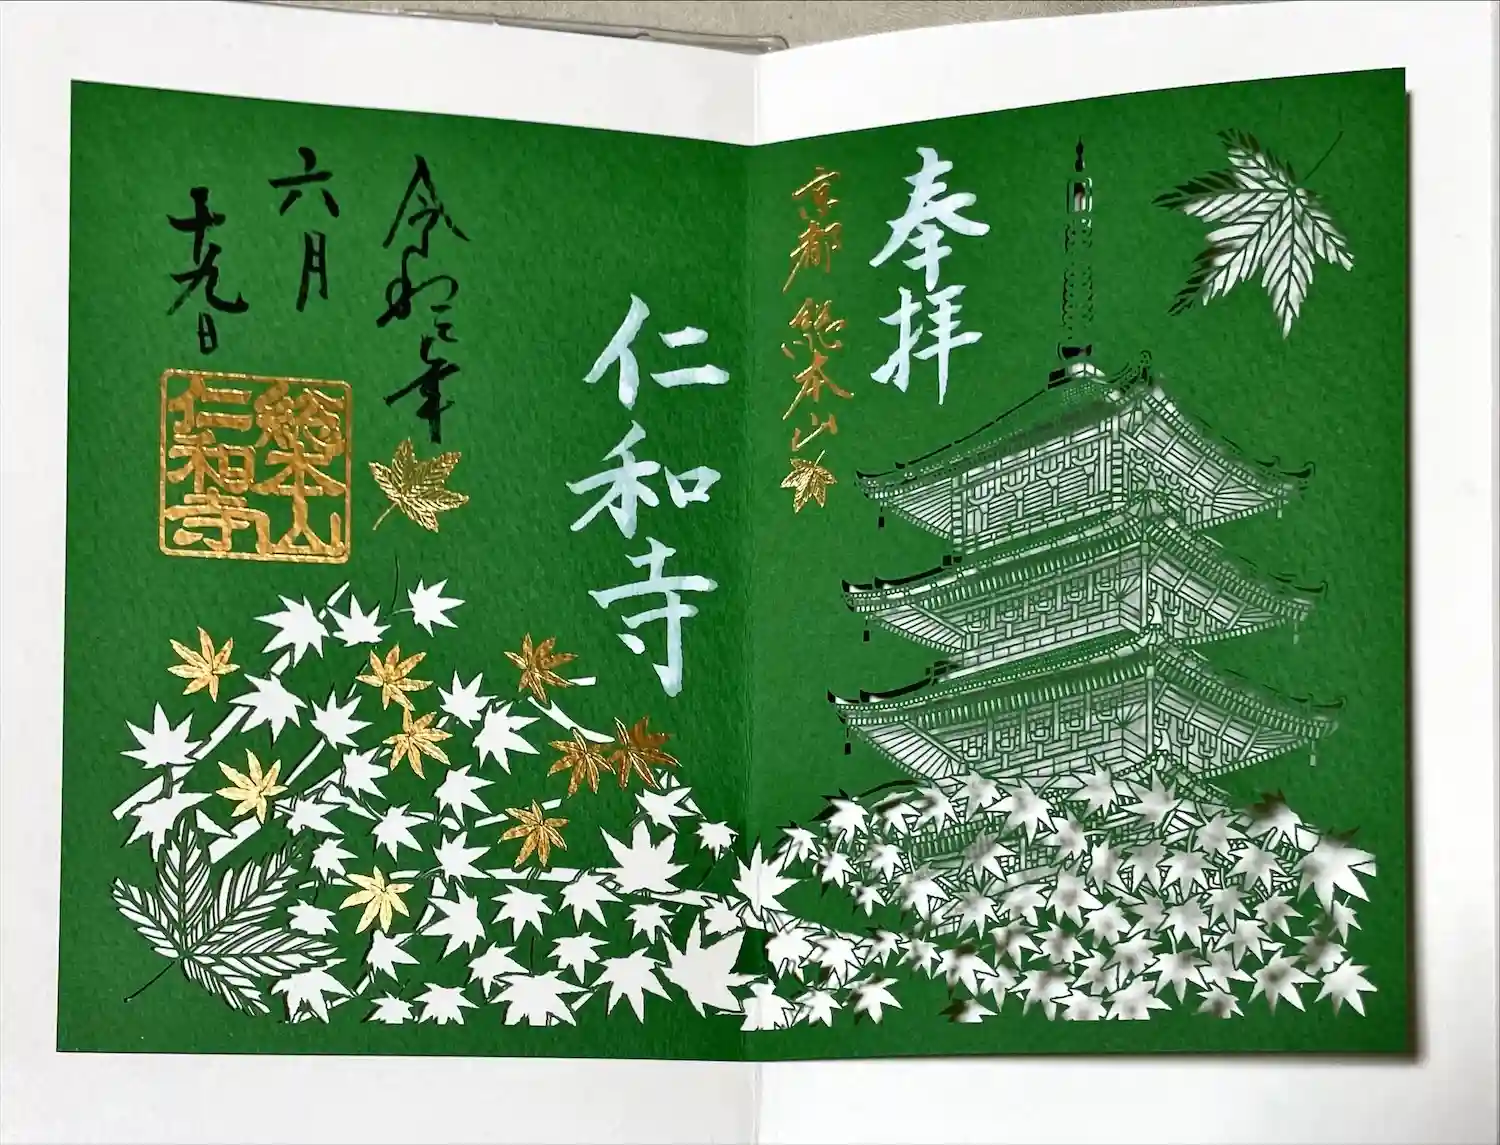 奉拝
京都 総本山
仁和寺
令和 年
六月
十九日
総本山
仁和寺